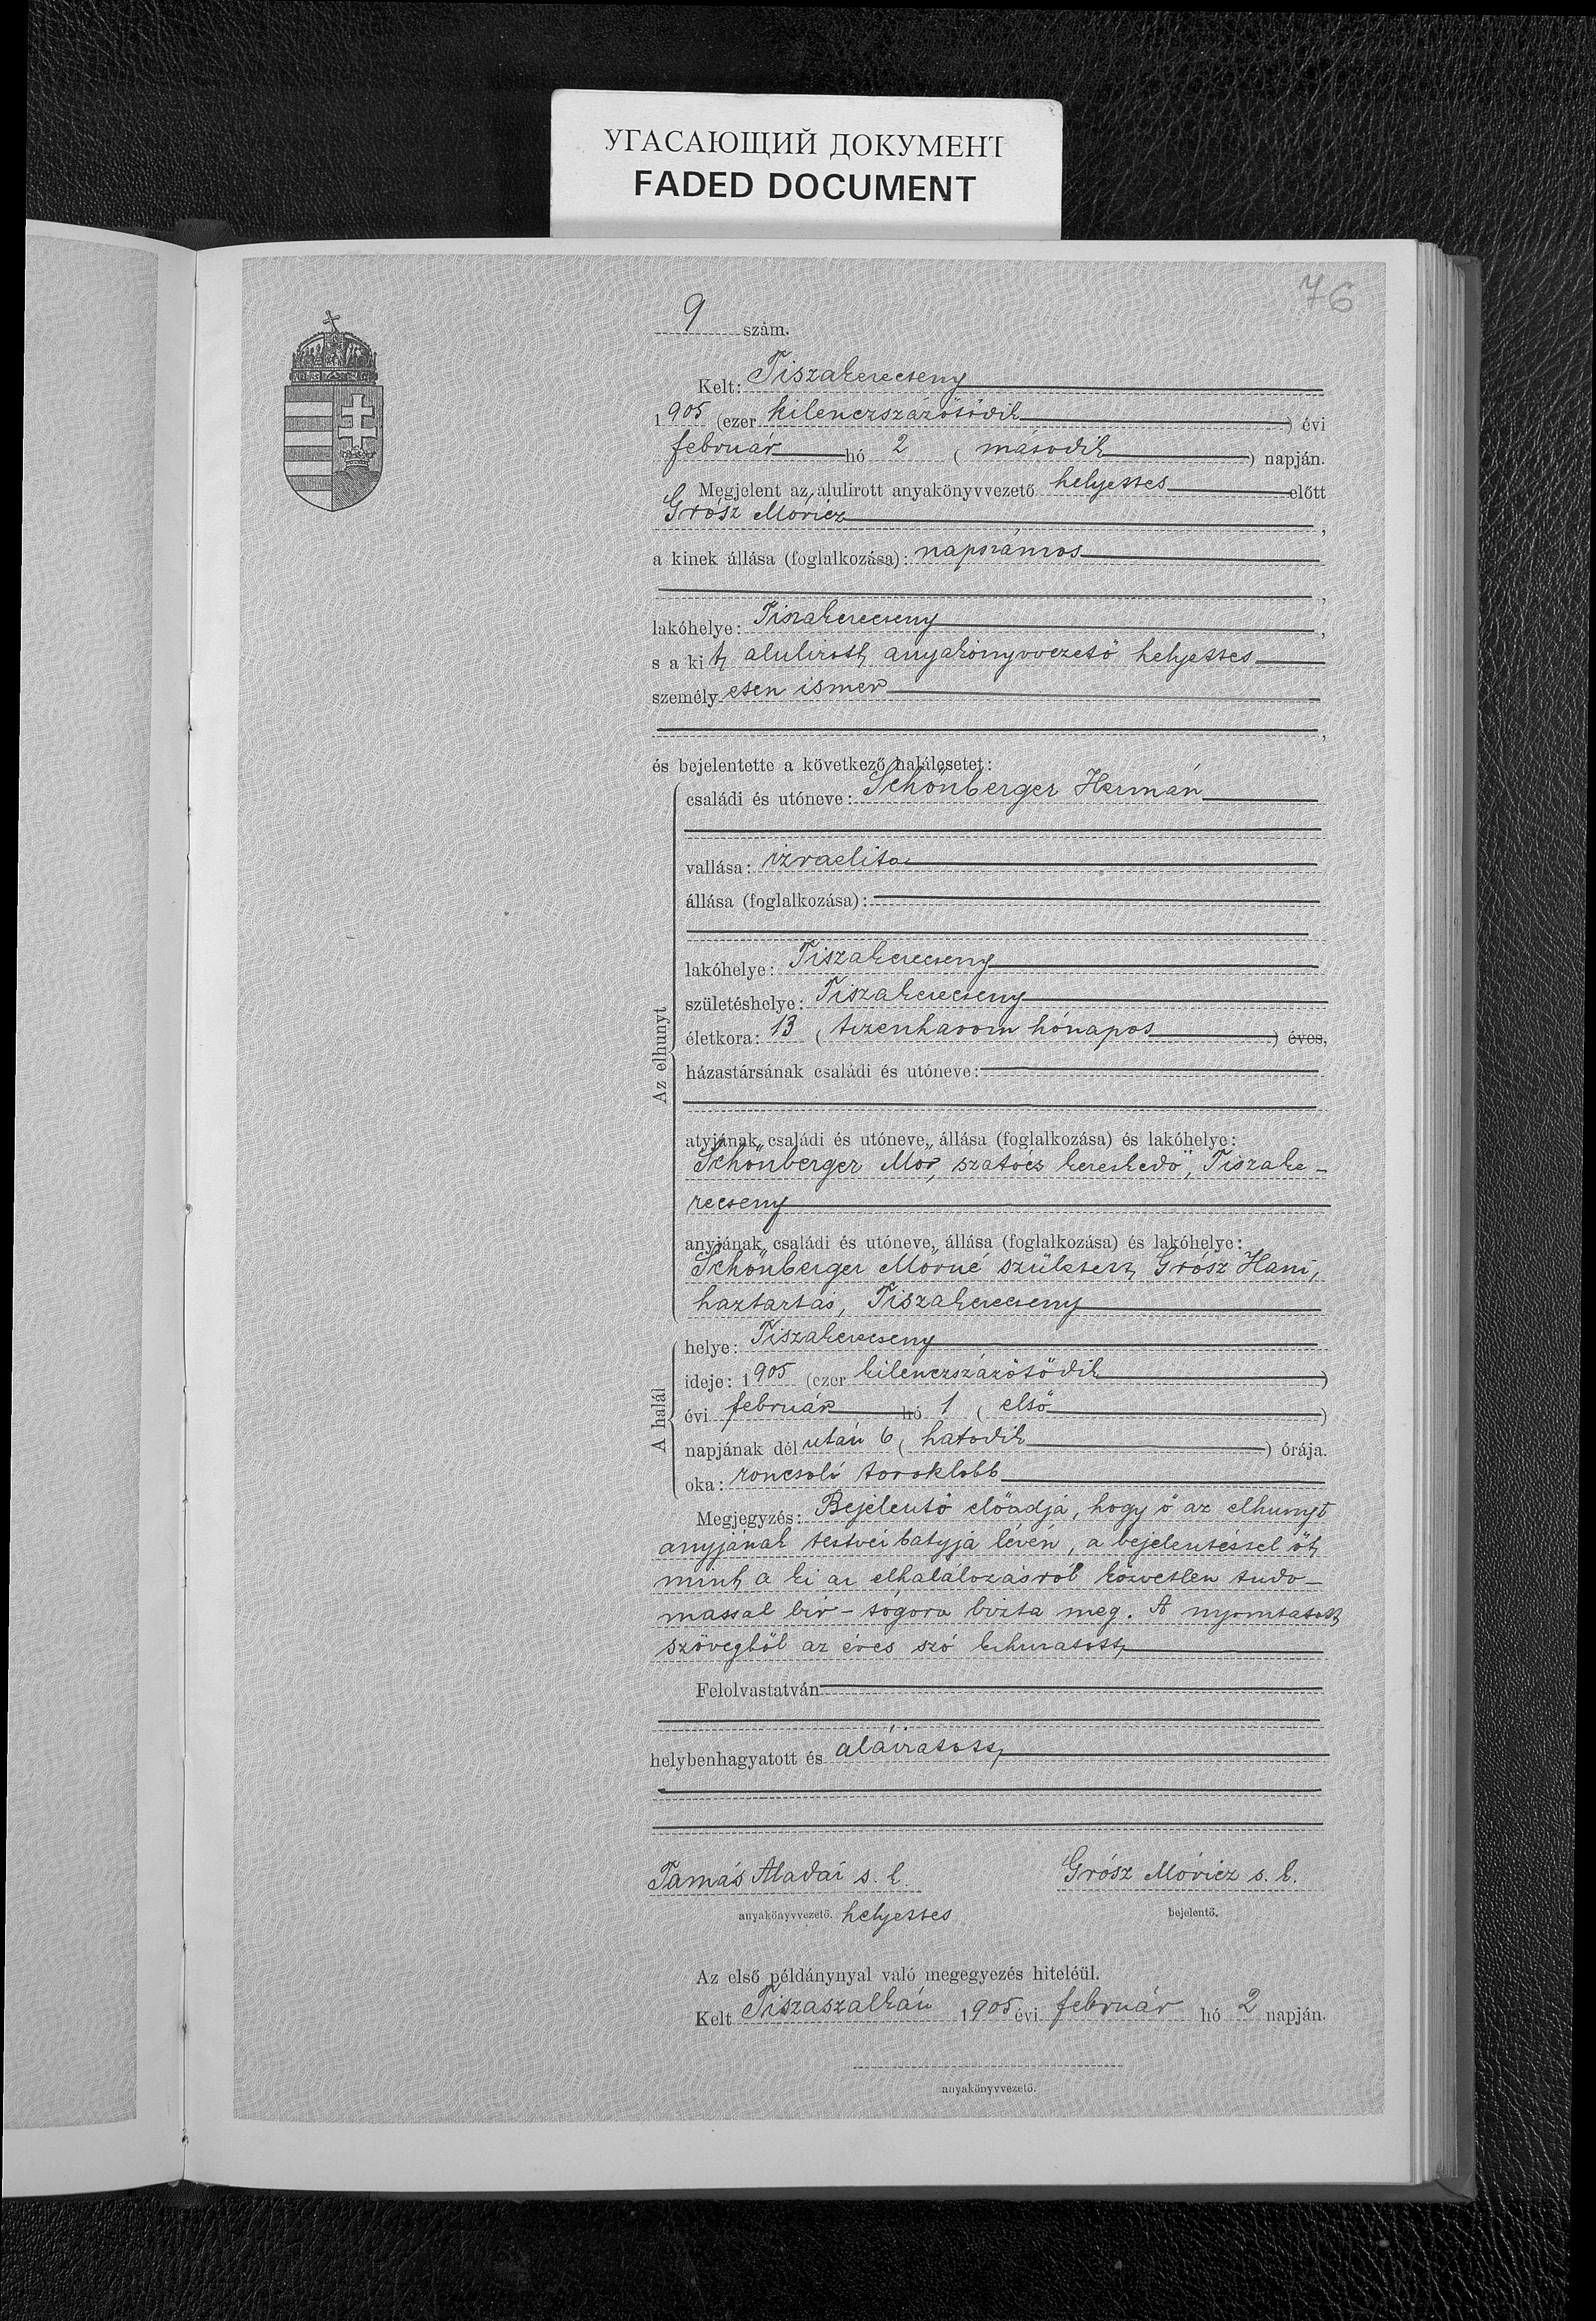 УГАСАЮЩИЙ ДОКУМЕНТ
FADED DOCUMENT
76
9 szám.
Kelt: Tiszakerecseny
1905 (ezer kilenczszázötödik) évi
február hó 2 (második) napján.
Megjelent az alulirott anyakönyvvezető helyettes előtt
Grósz Móricz,
a kinek állása (foglalkozása): napszámos
,
lakóhelye: Tiszakerecseny,
s a kit alulirott anyakönyvvezető helyettes
személyesen ismer
,
és bejelentette a következő halálesetet:
Az elhunyt
családi és utóneve: Schönberger Hermán
vallása: izraelita
állása (foglalkozása):
lakóhelye: Tiszakerecseny
születéshelye: Tiszakerecseny
életkora: 13 (tizenharom hónapos) éves,
házastársának családi és utóneve:
atyjának családi és utóneve, állása (foglalkozása) és lakóhelye:
Schönberger Mór, szatócs kereskedö, Tiszake-
recseny
anyjának családi és utóneve, állása (foglalkozása) és lakóhelye:
Schönberger Mórné született Grósz Hani,
haztartás, Tiszakerecseny
A halál
helye: Tiszakerecseny
ideje: 1905 (ezer kilenczszázötödik)
évi február hó 1 (első)
napjának dél után 6 (hatodik) órája.
oka: roncsoló toroklobb
Megjegyzés: Bejelentő előadja, hogy ő az elhunyt
anyjának testvér batyja lévén, a bejelentéssel őt
mint a ki az elhalálozásról közvetlen tudo-
massal bir - sógora bizta meg. A nyomtatott
szövegből az éves szó kihuzatott
Felolvastatván
helybenhagyatott és aláiratott
Tamás Aladár s. k.
Grósz Móricz s. k.
anyakönyvvezető. helyettes
bejelentő.
Az első példánynyal való megegyezés hiteléül.
Kelt Tiszaszalkán 1905 évi február hó 2 napján.
anyakönyvvezető.